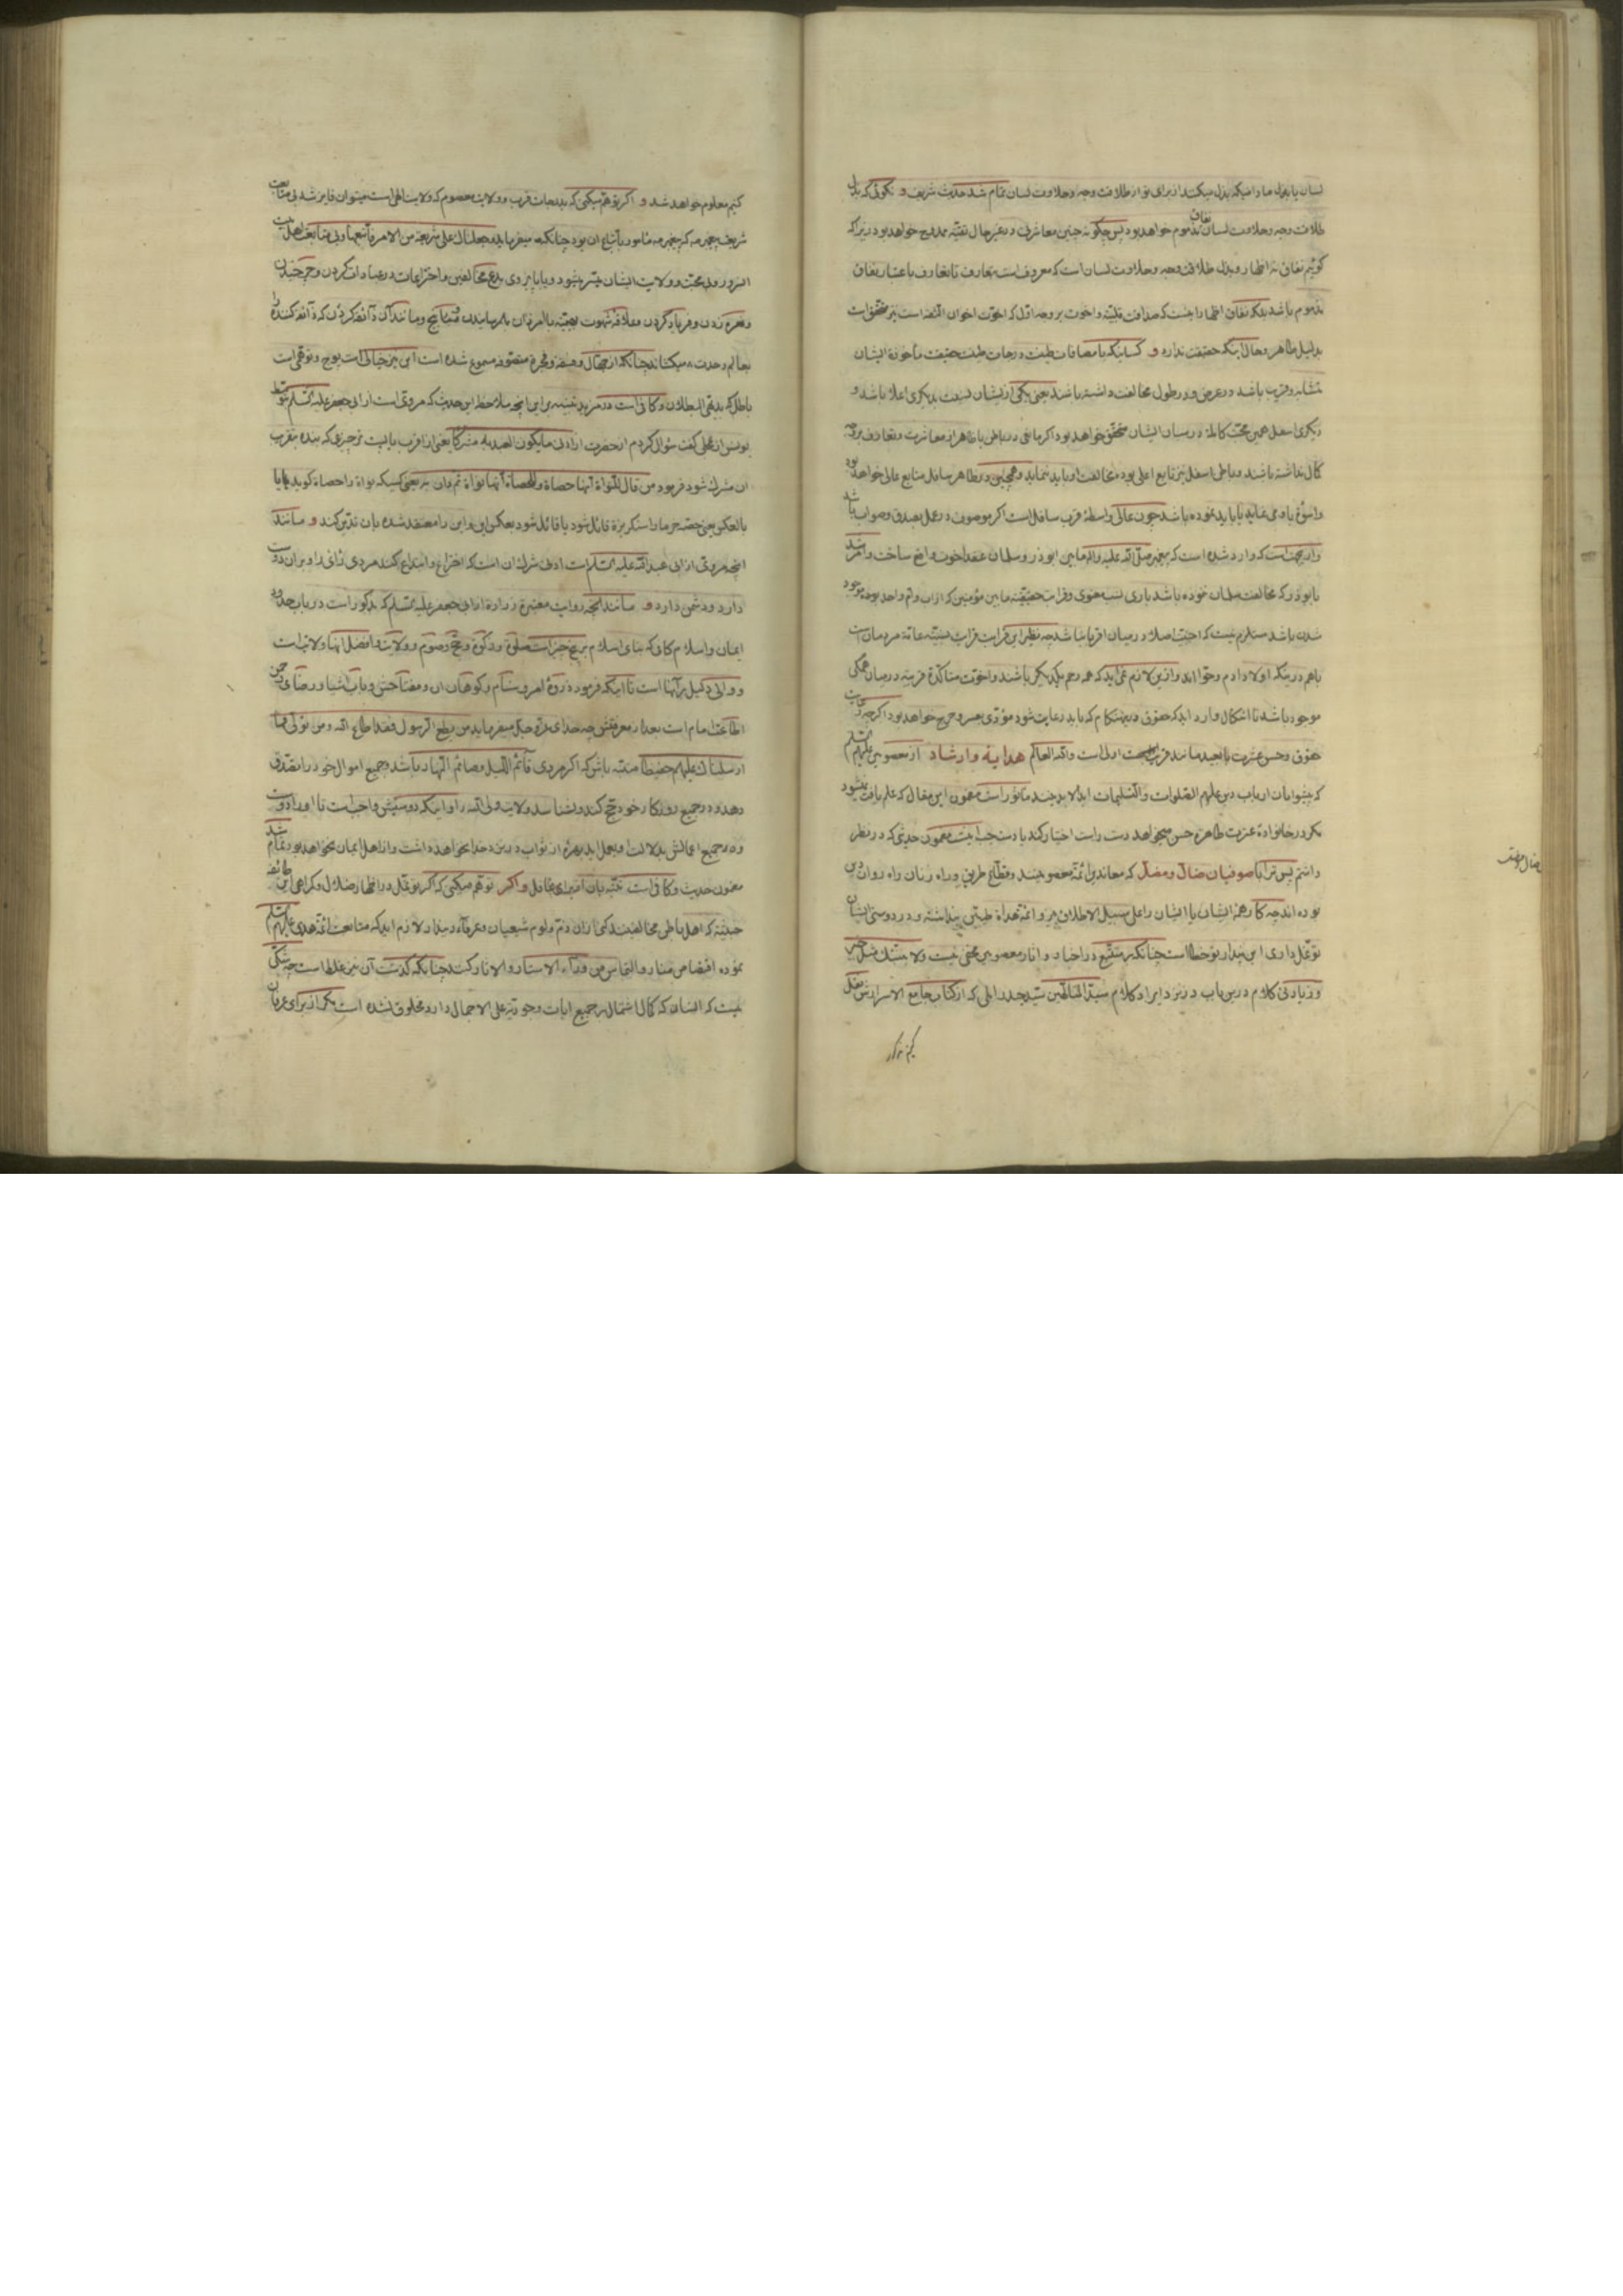 لسان یا بذل مادامیکه بذل میکند از برای تو از طلاقت وجه و حلاوت لسان تمام شد حدیث شریف و نکوئی که بذل
طلاقت وجه و حلاوت لسان نفاق مذموم خواهد بود پس چگونه چنین معاشرتی در غیر حال تقیّه ممدوح خواهد بود زیرا که
کوئیم نفاق نه اظهار و بذل طلاقت وجه و حلاوت لسان است که معروف است بتعارف تا تعارف باعتبار نفاق
مذموم باشد بلکه نفاق اظهار اینست که صداقت قلبیّه و اخوت بر وجه اوّل که اخوّت اخوان الثقه است نیز متحقق است
بدلیل ظاهر و حال اینکه حقیقت ندارد و کسانیکه بامصافات طینت و درجات طینت حقیقت مأخوذهٔ ایشان
متشابه و قریب باشد در عرض و در طول مخالفت داشته باشند یعنی یکی از ایشان نسبت بدیگری اعلا باشد و
دیگری اسفل همین محبّت کامله در میان ایشان متحقق خواهد بود اگر مانعی در باطن یا ظاهر از معاشرت و تعارف بر وجه
کمال نداشته باشند و باطن اسفل نیز تابع اعلی بوده مخالفت او باید ننماید و همچنین در ظاهر سافل متابع عالی خواهد بود
واسوّه باوی نماید یا باید نموده باشد چون عالی واسطهٔ قرب سافل است اگر موصوف در عمل بصدق و صواب باشد
و از اینجهت است که وارد شده است که پیغمبر صلّی الله علیه و اله مابین ابوذر و سلمان عقد اخوت واقع ساخت و امر شد
باوذر که مخالفت سلمان نموده باشد باری نسب معنوی و قرابت حقیقیّه مابین مؤمنین که از اب و ام واحد بوده موجود
شدن باشد مستلزم نیست که اجنبی اصلا در میان اقربا نباشد چه نظیر این قرابت قرابت نسبیّه عامّه مردمان است
باهم در اینکه اولاد ادم و حوّا اند و ازین لازم نمی‌اید که همه رحم یکدیگر باشند و اخوّت متاکدّهٔ قریبه در میان همکی
موجود باشد تا اشکال وارد اید که حقوق درینهنکام که باید رعایت شود مؤدّی بعسر و حرج خواهد بود اگرچه رعایت
حقوق و حسن عشرت با بعید مانند قریب اولی است والله العالم هدایه وارشاد از معصومین علیهم السّلم
که پیشوایان ارباب دین علیهم الصّلوات و التّسلیمات ابد الابدین مأثور است مضمون این مقال که علم یافت نمیشود
مکر در خانوادهٔ عترت طاهره حسن میخواهد دست راست اختیار کند یا دست چپ اینست مضمون حدیثی که در نظر
داشتم پس ترا با صوفیان ضالّ و مضلّ که معاندین ائمّه معصومینند و قطّاع طریق و راه زنان راه روان دین
بوده اند چه کار همهٔ ایشان یا ایشان را علی سبیل الاطلاق پیرو ائمّهٔ هداة طیّبین پنداشته و در دوستی ایشان
توغّل داری این پندار تو خطا است چنانکه بر متتبّع در اخبار و اثار معصومین مخفی نیست ولا ینبّئک مثل خبیر
و زیادتی کلام درین باب در نزد ایراد کلام سیّد المتألّهین سیّد حیدر املی که از کتاب جامع الاسرارش نقل
ضال مضل
کنیم معلوم خواهد شد و اگر توهّم میکنی که بدرجات قرب و ولایت معصوم که ولایت الهی است میتوان فایز شد بی متابعت
شریعت پیغمبر صه که پیغمبر صه مامور باتباع ان بود چنانکه میفرماید ثم جعلناک علی شریعة من الامر فاتّبعها و بی متابعت اهل بیت
و نعره زدن و فریاد کردن و علاقه شهوت بهیمیّه با امردان بهم رسانیدن و مانند آن
بعالم وحدت میکشاند چنانکه از جهّال و فسقه و فجرهٔ متصوّفه مسموع شده است این نیز خیالی است پوچ و توقعی است
باطل که بدیهی البطلان و کافی است در مزید تنبیه بر این انچه ملاحظه این حدیث که مرویّ است از ابی جعفر علیه السّلم
سؤال کردم از حضرت از ادنی مایکون العبد به مشرکا یعنی از اقرب یا پست تر چیزی که بنده بقرب
ان مشرک شود فرمود من قال للنّواة انّها حصاة و للحصاة انّها نواة ثم دان به یعنی کسیکه نواة را حصاة کوید
بالعکس یعنی قائل شود یا قائل شود بعکس این و این را معتقد شده بان تدیّن کند و مانند
انچه مرویّ از ابی عبد الله علیه السّلم است ادنی شرک ان است که اختراع و ابتداع کند مردی رائی را و بر ان دوست
دارد و دشمن دارد و مانند انچه روایت معتبرهٔ زرارة از ابی جعفر علیه السّلم که مذکور است در باب حدود
ایمان و اسلام کافی که بنای اسلام بر پنج چیز است صلوة و زکوة و حجّ و صوم و ولایت و افضل انها ولایت است
و والی دلیل بر انها است تا اینکه فرمود ذروهٔ امر و سنام و کوهان ان و مفتاحش و باب اشیا و رضای رحمن
اطاعت امام است بعد از معرفتش چه خدای عزّ و جلّ میفرماید من یطع الرّسول فقد اطاع الله و من تولّی فما
ارسلناک علیهم حفیظا متنبّه باش که اگر مردی قائم اللّیل و صائم النّهار باشد و جمیع اموال خود را تصدّق
دهد و در جمیع روزکار خود حجّ کند و نشناسد ولایت ولیّ الله را و اینکه دوستیش واجب است تا او را دوست
مضمون حدیث و کافی است تنبیه بان از برای عاقل و اگر توهّم میکنی که اگر توغّل در اظهار ضلال و کمراهی این طائفه
خبیثه که اهل باطن مخالفینند کنی از ان ذمّ و لوم شیعیان و عرفاء دیندار لازم اید که متابعت ائمّه هدی علیهم السّلم
نموده من وراء الاستار و الانار کنند چنانکه کذشت آن نیز غلط است چه شکی
نیست که انسان که کمال اشتمال بر جمیع ایات وجودیّه علی الاجمال دارد مخلوق نشده است مکر از برای عرفان